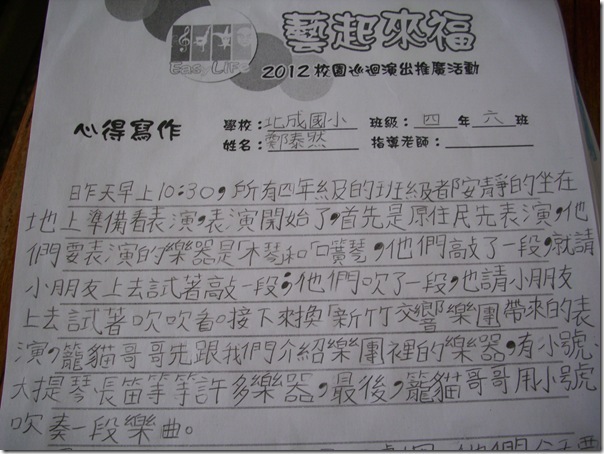 Easy LiFe
藝起來福
2012校園巡迴演出推廣活動
心得寫作
學校：北成國小 班級：四年六班
姓名：鄭泰然 指導老師：
昨天早上10:30，所有四年級的班級都安靜的坐在
地上準備看表演，表演開始了，首先是原住民先表演，他
們要表演的樂器是「木琴和「口簧琴，他們敲了一段，就請
小朋友上去試著敲一段；他們吹了一段，也請小朋友
上去試著吹吹看。接下來換「新竹交響樂團帶來的表
演，龍貓哥哥先跟我們介紹樂團裡的樂器，有小號、
大提琴長笛等等許多樂器，最後，龍貓哥哥用小號
吹奏一段樂曲。